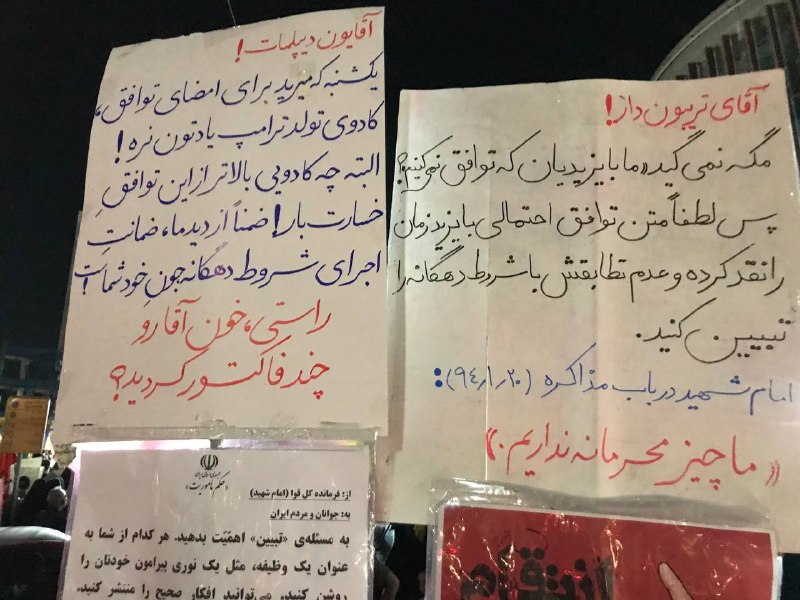 آقایون دیپلمات!
یکشنبه که میرید برای امضای توافق،
کادوی تولد ترامپ یادتون نره!
البته چه کادویی بالاتر از این توافقِ
خسارت بار! ضمناً از دید ما، ضمانتِ
اجرای شروط دهگانه جونِ خود شماست!
راستی، خون آقا رو
چند فاکتور کردید؟
آقای تریبون دار!
مگه نمی گید «ما با یزیدیان که توافق نمی کنیم»؟
پس لطفاً متن توافق احتمالی با یزید زمان
را نقد کرده و عدم تطابقش با شروط دهگانه را
تبیین کنید.
امام شهید در باب مذاکره (۹۴٫۱٫۲۰):
«ما چیز محرمانه نداریم.»
جمهوری اسلامی ایران
«حکم مأموریت»
از: فرمانده کل قوا (امام شهید)
به: جوانان و مردم ایران
به مسئله‌ی «تبیین» اهمّیّت بدهید. هر کدام از شما به
عنوان یک وظیفه، مثل یک نوری پیرامون خودتان را
روشن کنید. می‌توانید افکار صحیح را منتشر کنید.
انتقام